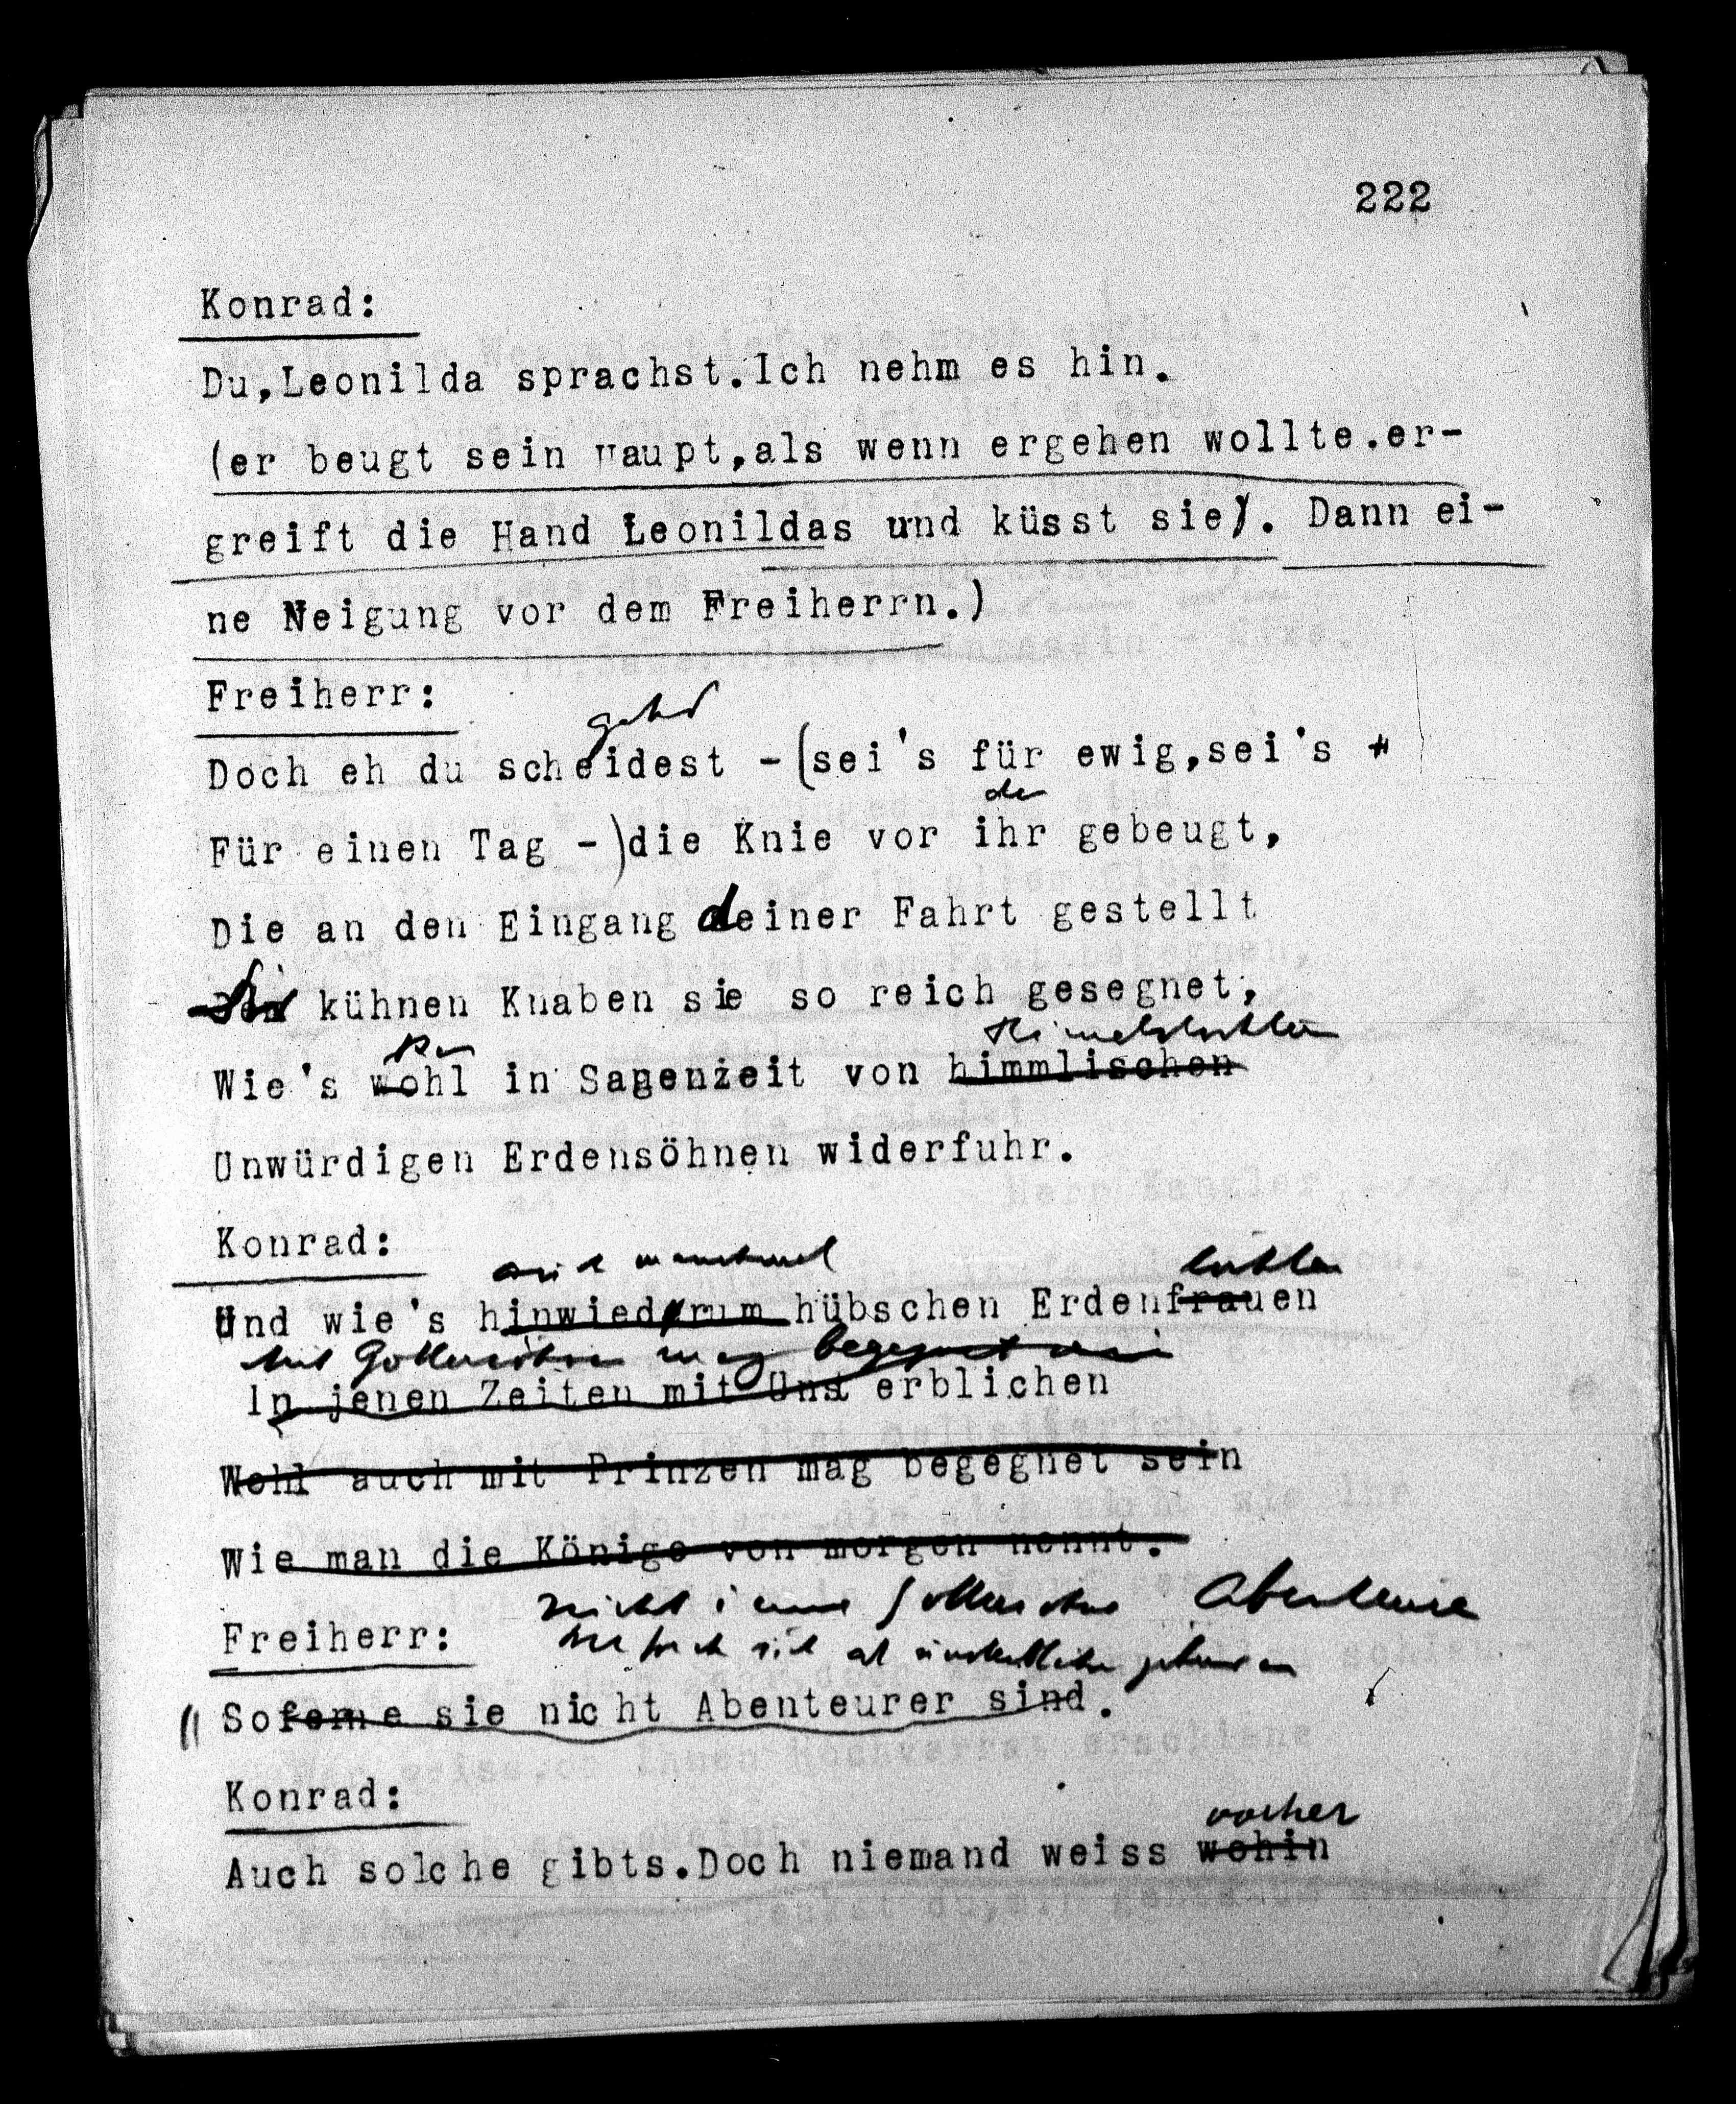 222
Konrad:
Du,Leonilda sprachst.Ich nehm es hin.
(er beugt sein Haupt,als wenn ergehen wollte.er-
greift die Hand Leonildas und küsst sie). Dann ei-
ne Neigung vor dem Freiherrn.)
Freiherr:
gehst
Doch eh du scheidest -(sei's für ewig,sei's
der
Für einen Tag -)die Knie vor ihr gebeugt,
Die an den Eingang deiner Fahrt gestellt
kühnen Knaben sie so reich gesegnet,
Himmelstöchtern
Wie's wohl in Sagenzeit von himmlischen
Unwürdigen Erdensöhnen widerfuhr.
Konrad:
auch manchmal
töchtern
Und wie's hinwiederum hübschen Erdenfrauen
Mit Göttersöhnen mag begegnet sein
In jenen Zeiten mit Unsterblichen
Wohl auch mit Prinzen mag begegnet sein
Wie man die Könige von morgen nennt.
nicht Göttersöhne Abenteurer
Freiherr:
sich als
Soferne sie nicht Abenteurer sind.
Konrad:
vorher
Auch solche gibts.Doch niemand weiss wohin